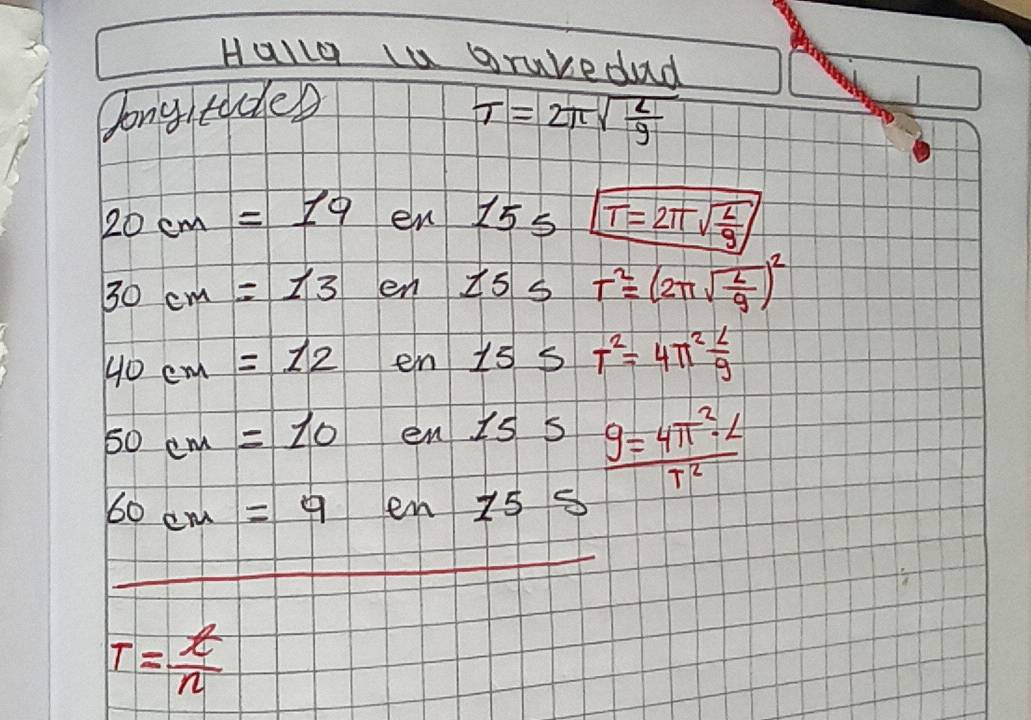 Halla la Gravedad
Longitudes T = 2π√(L/g)
20 cm = 19 en 15 s T = 2π√(L/g)
30 cm = 13 en 15 s T² = (2π√(L/g))²
40 cm = 12 en 15 s T² = 4π² L/g
50 cm = 10 en 15 s g = 4π² · L / T²
60 cm = 9 en 15 s
T = t/n